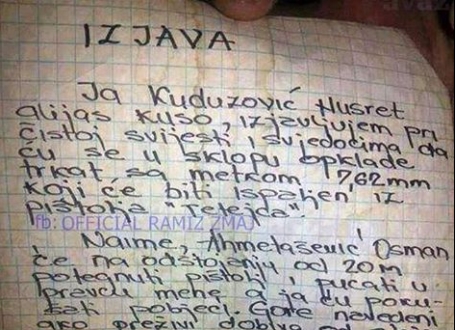 IZJAVA
Ja Kuduzović Husret
alijas kuso, izjavljujem pri
čistoj svijesti i svjedocima da
ću se u sklopu opklade
trkat sa metkom 7,62mm
koji će biti ispaljen iz
pištolja "tetejda".
fb: OFFICIAL RAMIZ ZMAJ
Naime, Ahmetašević Osman
će na odstojanju od 20m
potegnuti pištolj pucati u
pravcu mene a ja ću poku-
šati pobjeć. Gore navedeni
ako preživi dobiva